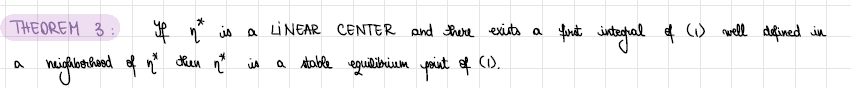 THEOREM 3: If η* is a LINEAR CENTER and there exists a first integral of (1) well defined in
a neighborhood of η* then η* is a stable equilibrium point of (1).